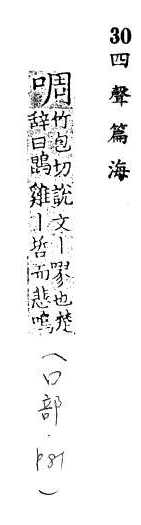 30四聲篇海
啁竹包切說文丨嘐也楚
辭曰鵾雞丨哳而悲鳴
(口部.P31)